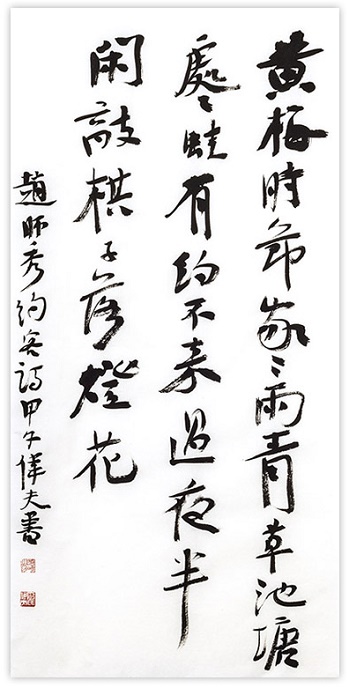 黄梅時節家々雨青草池塘
處々蛙有約不来過夜半
閑敲棋子落燈花
趙師秀約客詩甲午偉夫書